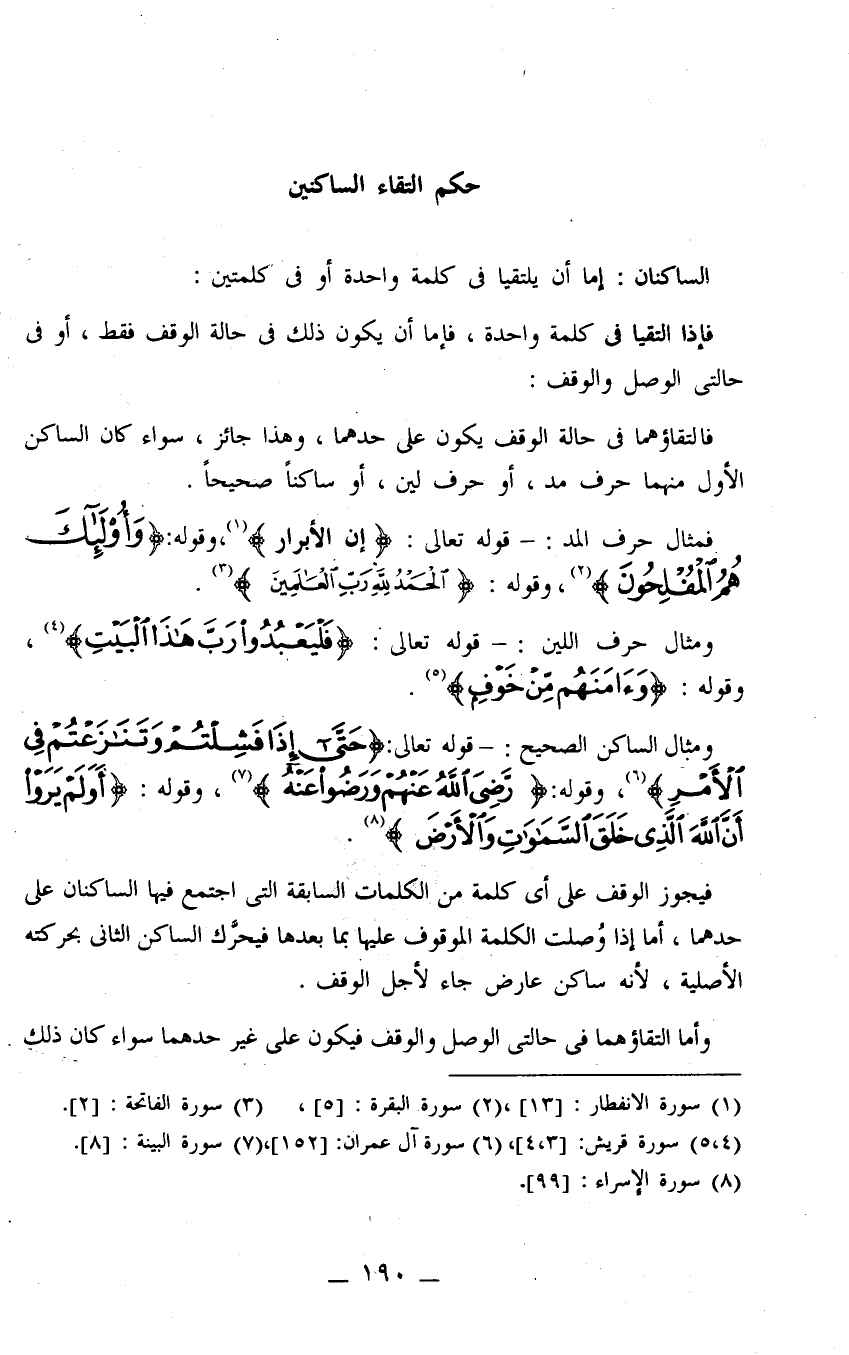 حكم التقاء الساكنين
الساكنان : إما أن يلتقيا فى كلمة واحدة أو فى كلمتين :
فإذا التقيا فى كلمة واحدة ، فإما أن يكون ذلك فى حالة الوقف فقط ، أو فى
حالتى الوصل والوقف :
فالتقاؤهما فى حالة الوقف يكون على حدهما ، وهذا جائز ، سواء كان الساكن
الأول منهما حرف مد ، أو حرف لين ، أو ساكناً صحيحاً .
فمثال حرف المد : – قوله تعالى : ﴿ إن الأبرار ﴾(١)،وقوله:﴿وَأُوْلَٰٓئِكَ
هُمُ ٱلْمُفْلِحُونَ ﴾(٢) ، وقوله : ﴿ ٱلْحَمْدُ لِلَّهِ رَبِّ ٱلْعَٰلَمِينَ ﴾(٣) .
ومثال حرف اللين : – قوله تعالى : ﴿فَلْيَعْبُدُواْ رَبَّ هَٰذَا ٱلْبَيْتِ﴾(٤) ،
وقوله : ﴿وَءَامَنَهُم مِّنْ خَوْفٍ﴾(٥) .
ومثال الساكن الصحيح : – قوله تعالى:﴿حَتَّىٰٓ إِذَا فَشِلْتُمْ وَتَنَٰزَعْتُمْ فِى
ٱلْأَمْرِ﴾(٦)، وقوله:﴿ رَّضِىَ ٱللَّهُ عَنْهُمْ وَرَضُواْ عَنْهُ ﴾(٧) ، وقوله : ﴿أَوَلَمْ يَرَوْاْ
أَنَّ ٱللَّهَ ٱلَّذِى خَلَقَ ٱلسَّمَٰوَٰتِ وَٱلْأَرْضَ ﴾(٨) .
فيجوز الوقف على أى كلمة من الكلمات السابقة التى اجتمع فيها الساكنان على
حدهما ، أما إذا وُصلت الكلمة الموقوف عليها بما بعدها فيحرَّك الساكن الثانى بحركته
الأصلية ، لأنه ساكن عارض جاء لأجل الوقف .
وأما التقاؤهما فى حالتى الوصل والوقف فيكون على غير حدهما سواء كان ذلك
(١) سورة الانفطار : [١٣] ،(٢) سورة البقرة : [٥] ، (٣) سورة الفاتحة : [٢].
(٥،٤) سورة قريش: [٤،٣]، (٦) سورة آل عمران: [١٥٢]،(٧) سورة البينة : [٨].
(٨) سورة الإسراء : [٩٩].
– ١٩٠ –